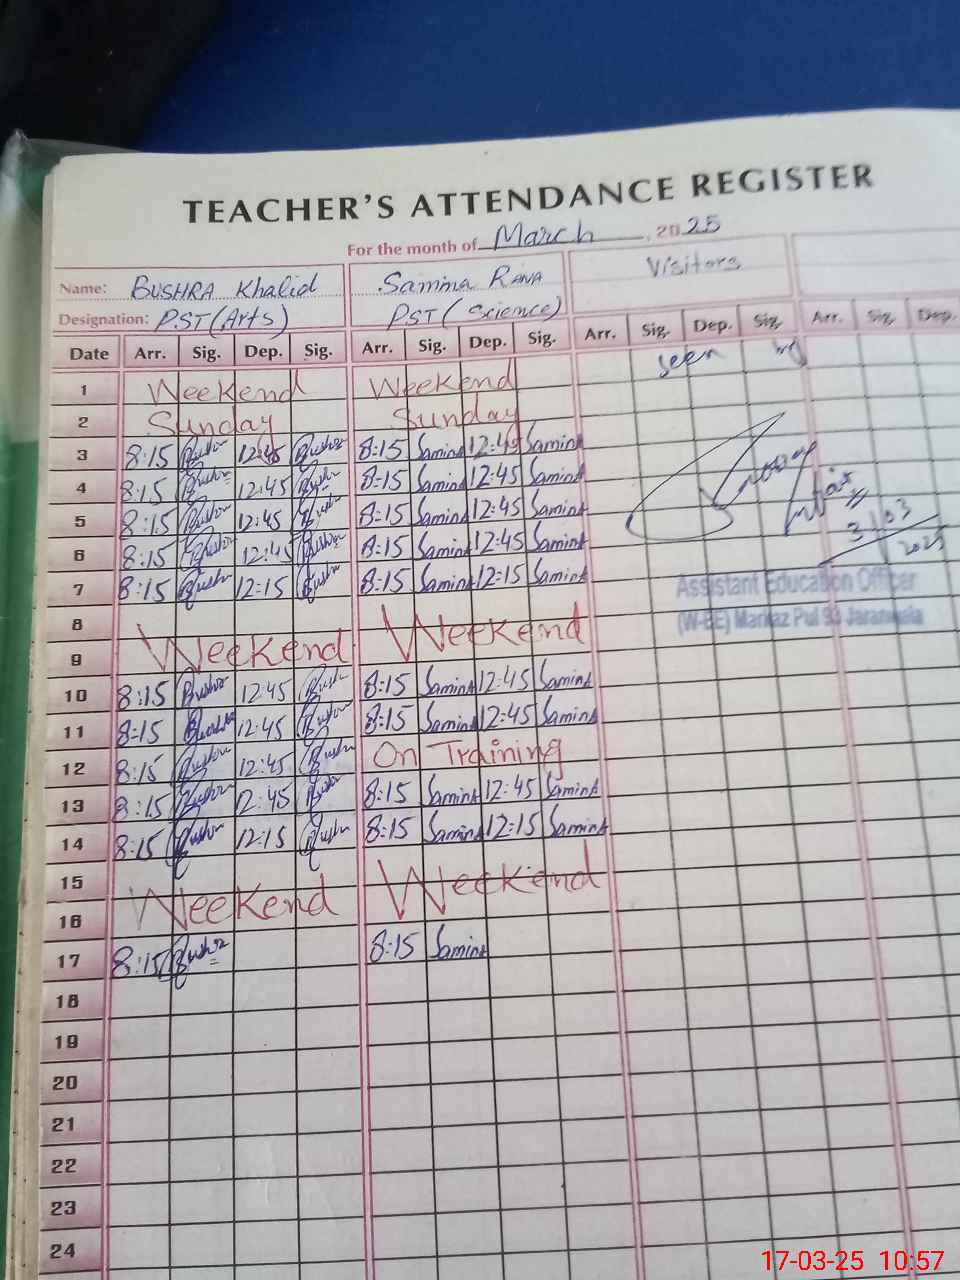 TEACHER'S ATTENDANCE REGISTER
For the month of March, 2025
Name: BUSHRA Khalid Samina RANA Visitors
Designation: PST(Arts) PST (Science)
Date Arr. Sig. Dep. Sig. Arr. Sig. Dep. Sig. Arr. Sig. Dep. Sig. Arr. Sig. Dep.
1 Weekend Weekend seen
2 Sunday Sunday
3 8:15 Bushra 12:45 Bushra 8:15 Samina 12:45 Samina
4 8:15 Bushra 12:45 Bushra 8:15 Samina 12:45 Samina
5 8:15 Bushra 12:45 Bushra 8:15 Samina 12:45 Samina
6 8:15 Bushra 12:45 Bushra 8:15 Samina 12:45 Samina
7 8:15 Bushra 12:15 Bushra 8:15 Samina 12:15 Samina
3/03
2025
Assistant Education Officer
(W-EE) Markaz Pul 93 Jaranwala
8
9 Weekend Weekend
10 8:15 Bushra 12:45 Bushra 8:15 Samina 12:45 Samina
11 8:15 Bushra 12:45 Bushra 8:15 Samina 12:45 Samina
12 8:15 Bushra 12:45 Bushra On Training
13 8:15 Bushra 12:45 Bushra 8:15 Samina 12:45 Samina
14 8:15 Bushra 12:15 Bushra 8:15 Samina 12:15 Samina
15
16 Weekend Weekend
17 8:15 Bushra 8:15 Samina
18
19
20
21
22
23
24
17-03-25 10:57